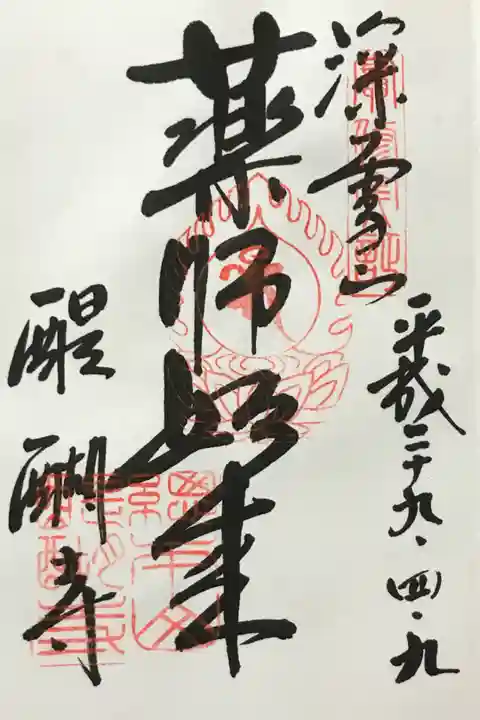 平成二十九・四・九
深雪山
薬師如来
醍醐寺